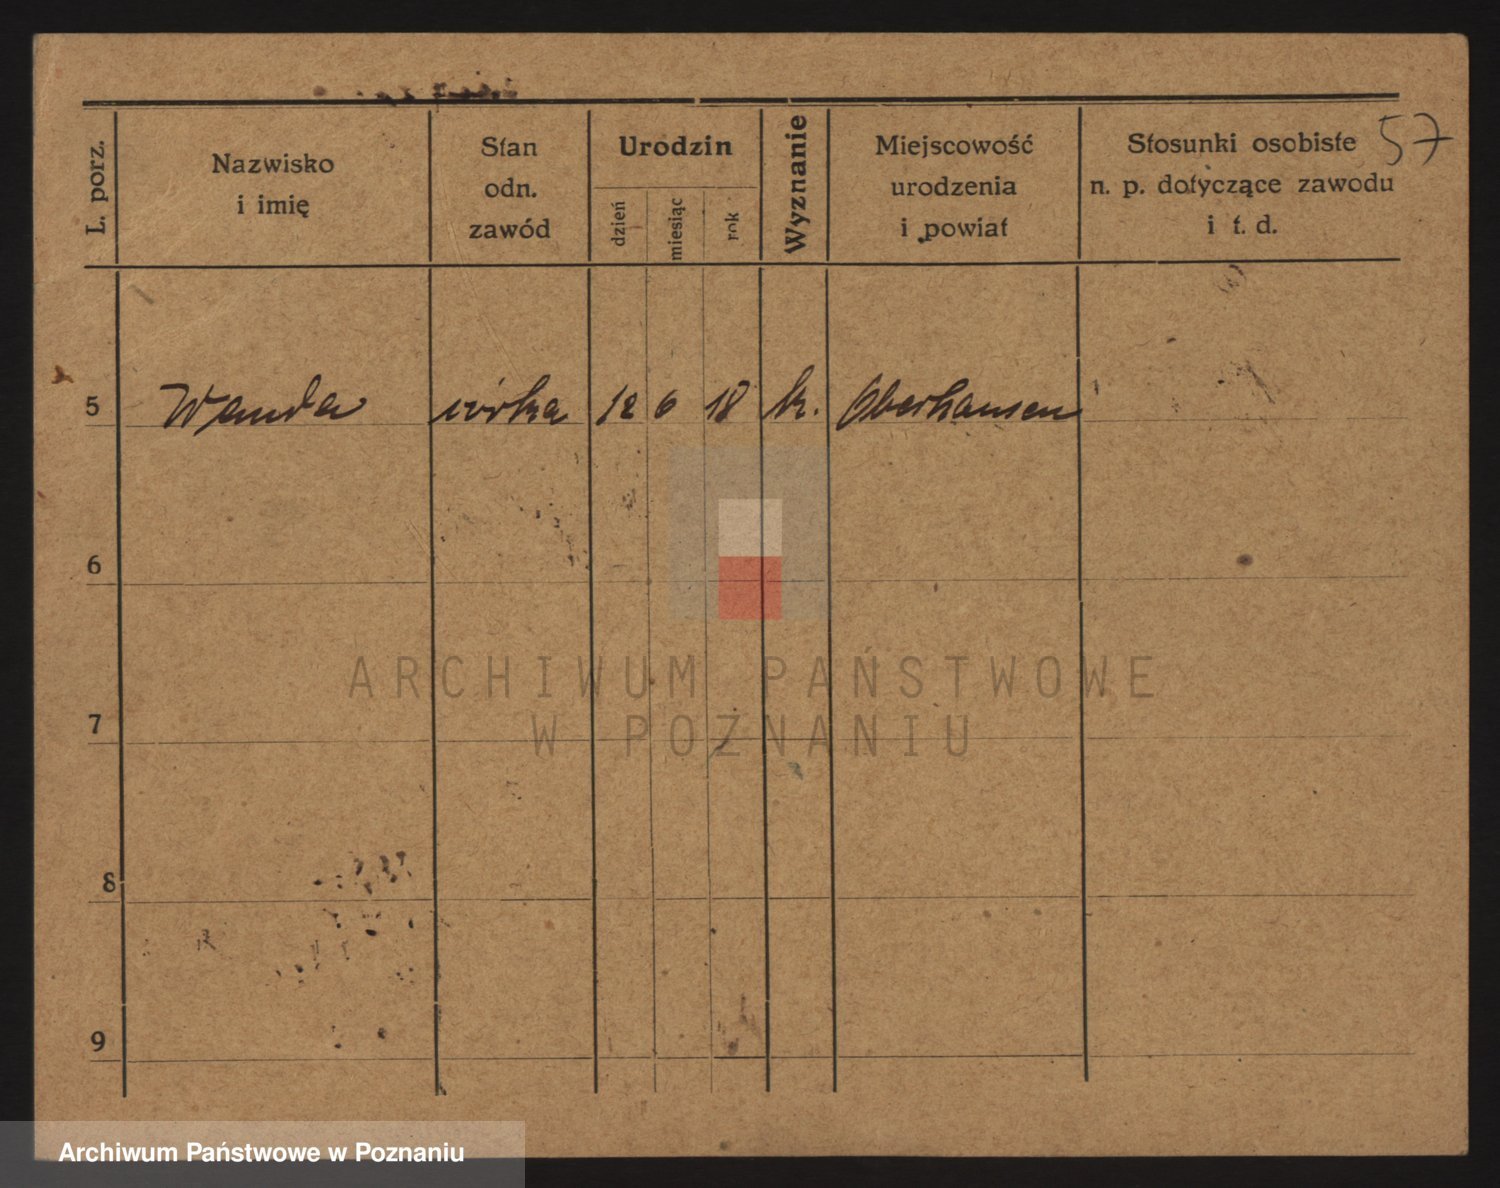 57
L. porz.
Nazwisko
i imię
Stan
odn.
zawód
Urodzin
dzień
miesiąc
rok
Wyznanie
Miejscowość
urodzenia
i powiat
Stosunki osobiste
n. p. dotyczące zawodu
i t. d.
5 Wanda córka 12 6 18 k. Oberhausen
6
7
8
9
ARCHIWUM PAŃSTWOWE
W POZNANIU
Archiwum Państwowe w Poznaniu